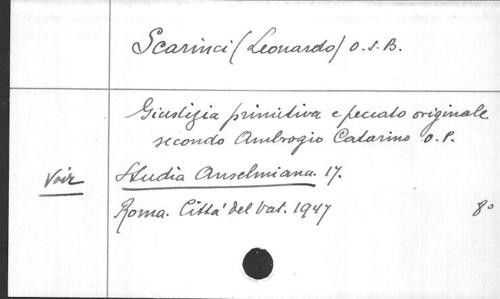 Scarinci (Leonardo) O.S.B.
Giustizia primitiva e peccato originale
secondo Ambrogio Catarino O.P.
Voir Studia Anselmiana. 17.
Roma. Città del Vat. 1947 8°